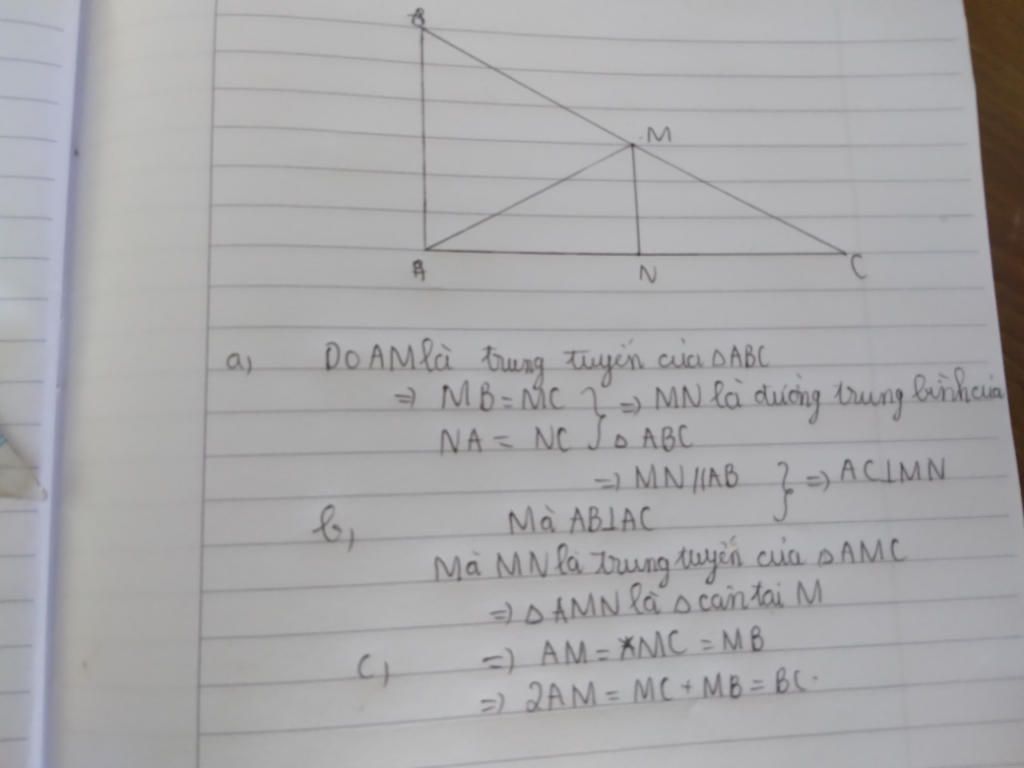 B
M
A
N
C
a, Do AM là trung tuyến của △ABC
⇒ MB = MC } ⇒ MN là đường trung bình của
NA = NC } △ ABC
⇒ MN // AB } ⇒ AC⊥MN
b, Mà AB⊥AC
Mà MN là trung tuyến của △ AMC
⇒ △ AMN là △ cân tại M
c, ⇒ AM = MC = MB
⇒ 2AM = MC + MB = BC.